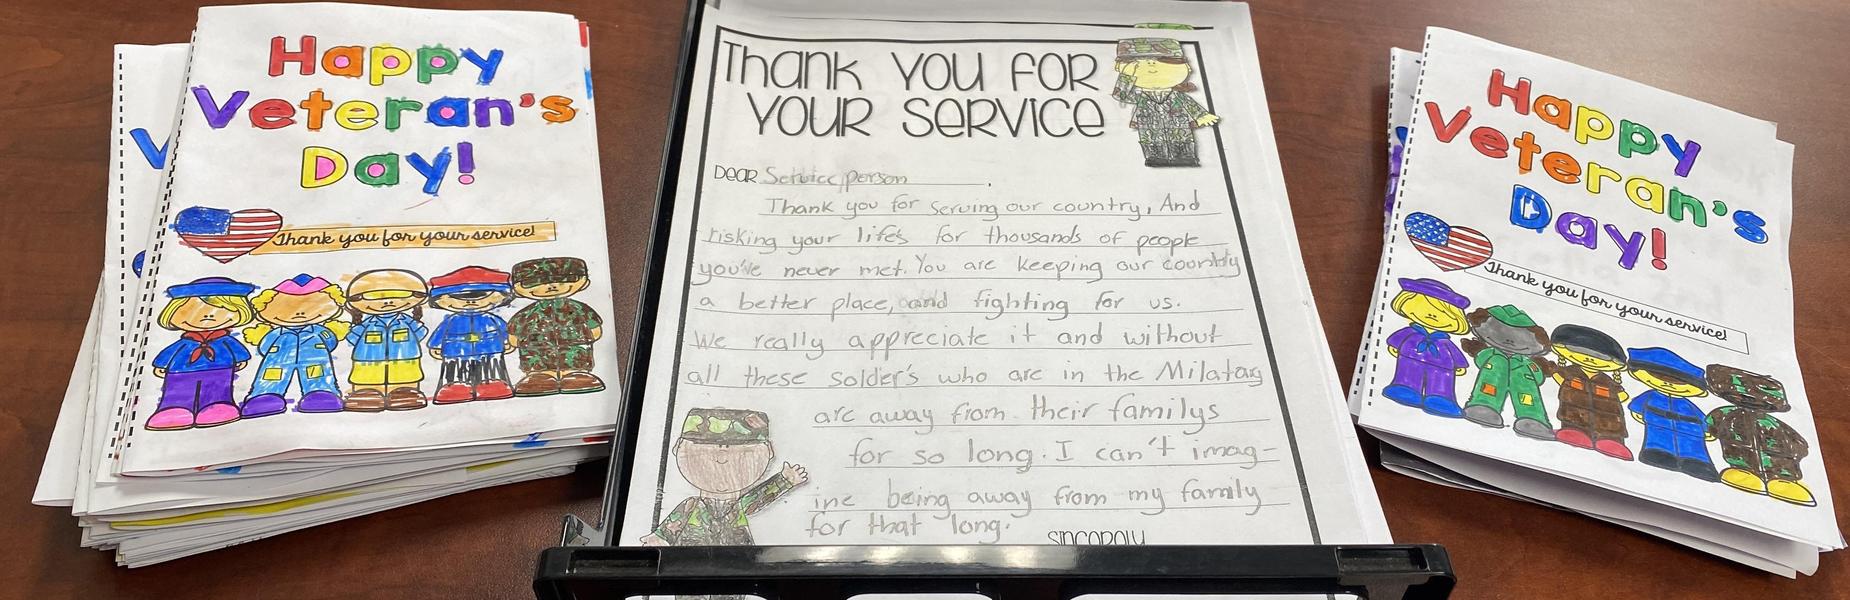 Happy
Veteran's
Day!
Thank you for your service!
Thank you for
your service
Dear Service person,
Thank you for serving our country, And
risking your life's for thousands of people
you've never met. You are keeping our country
a better place, and fighting for us.
We really appreciate it and without
all these solder's who are in the Milatary
are away from their familys
for so long. I can't imag-
ine being away from my family
for that long.
Sincerely
Happy
Veteran's
Day!
Thank you for your service!